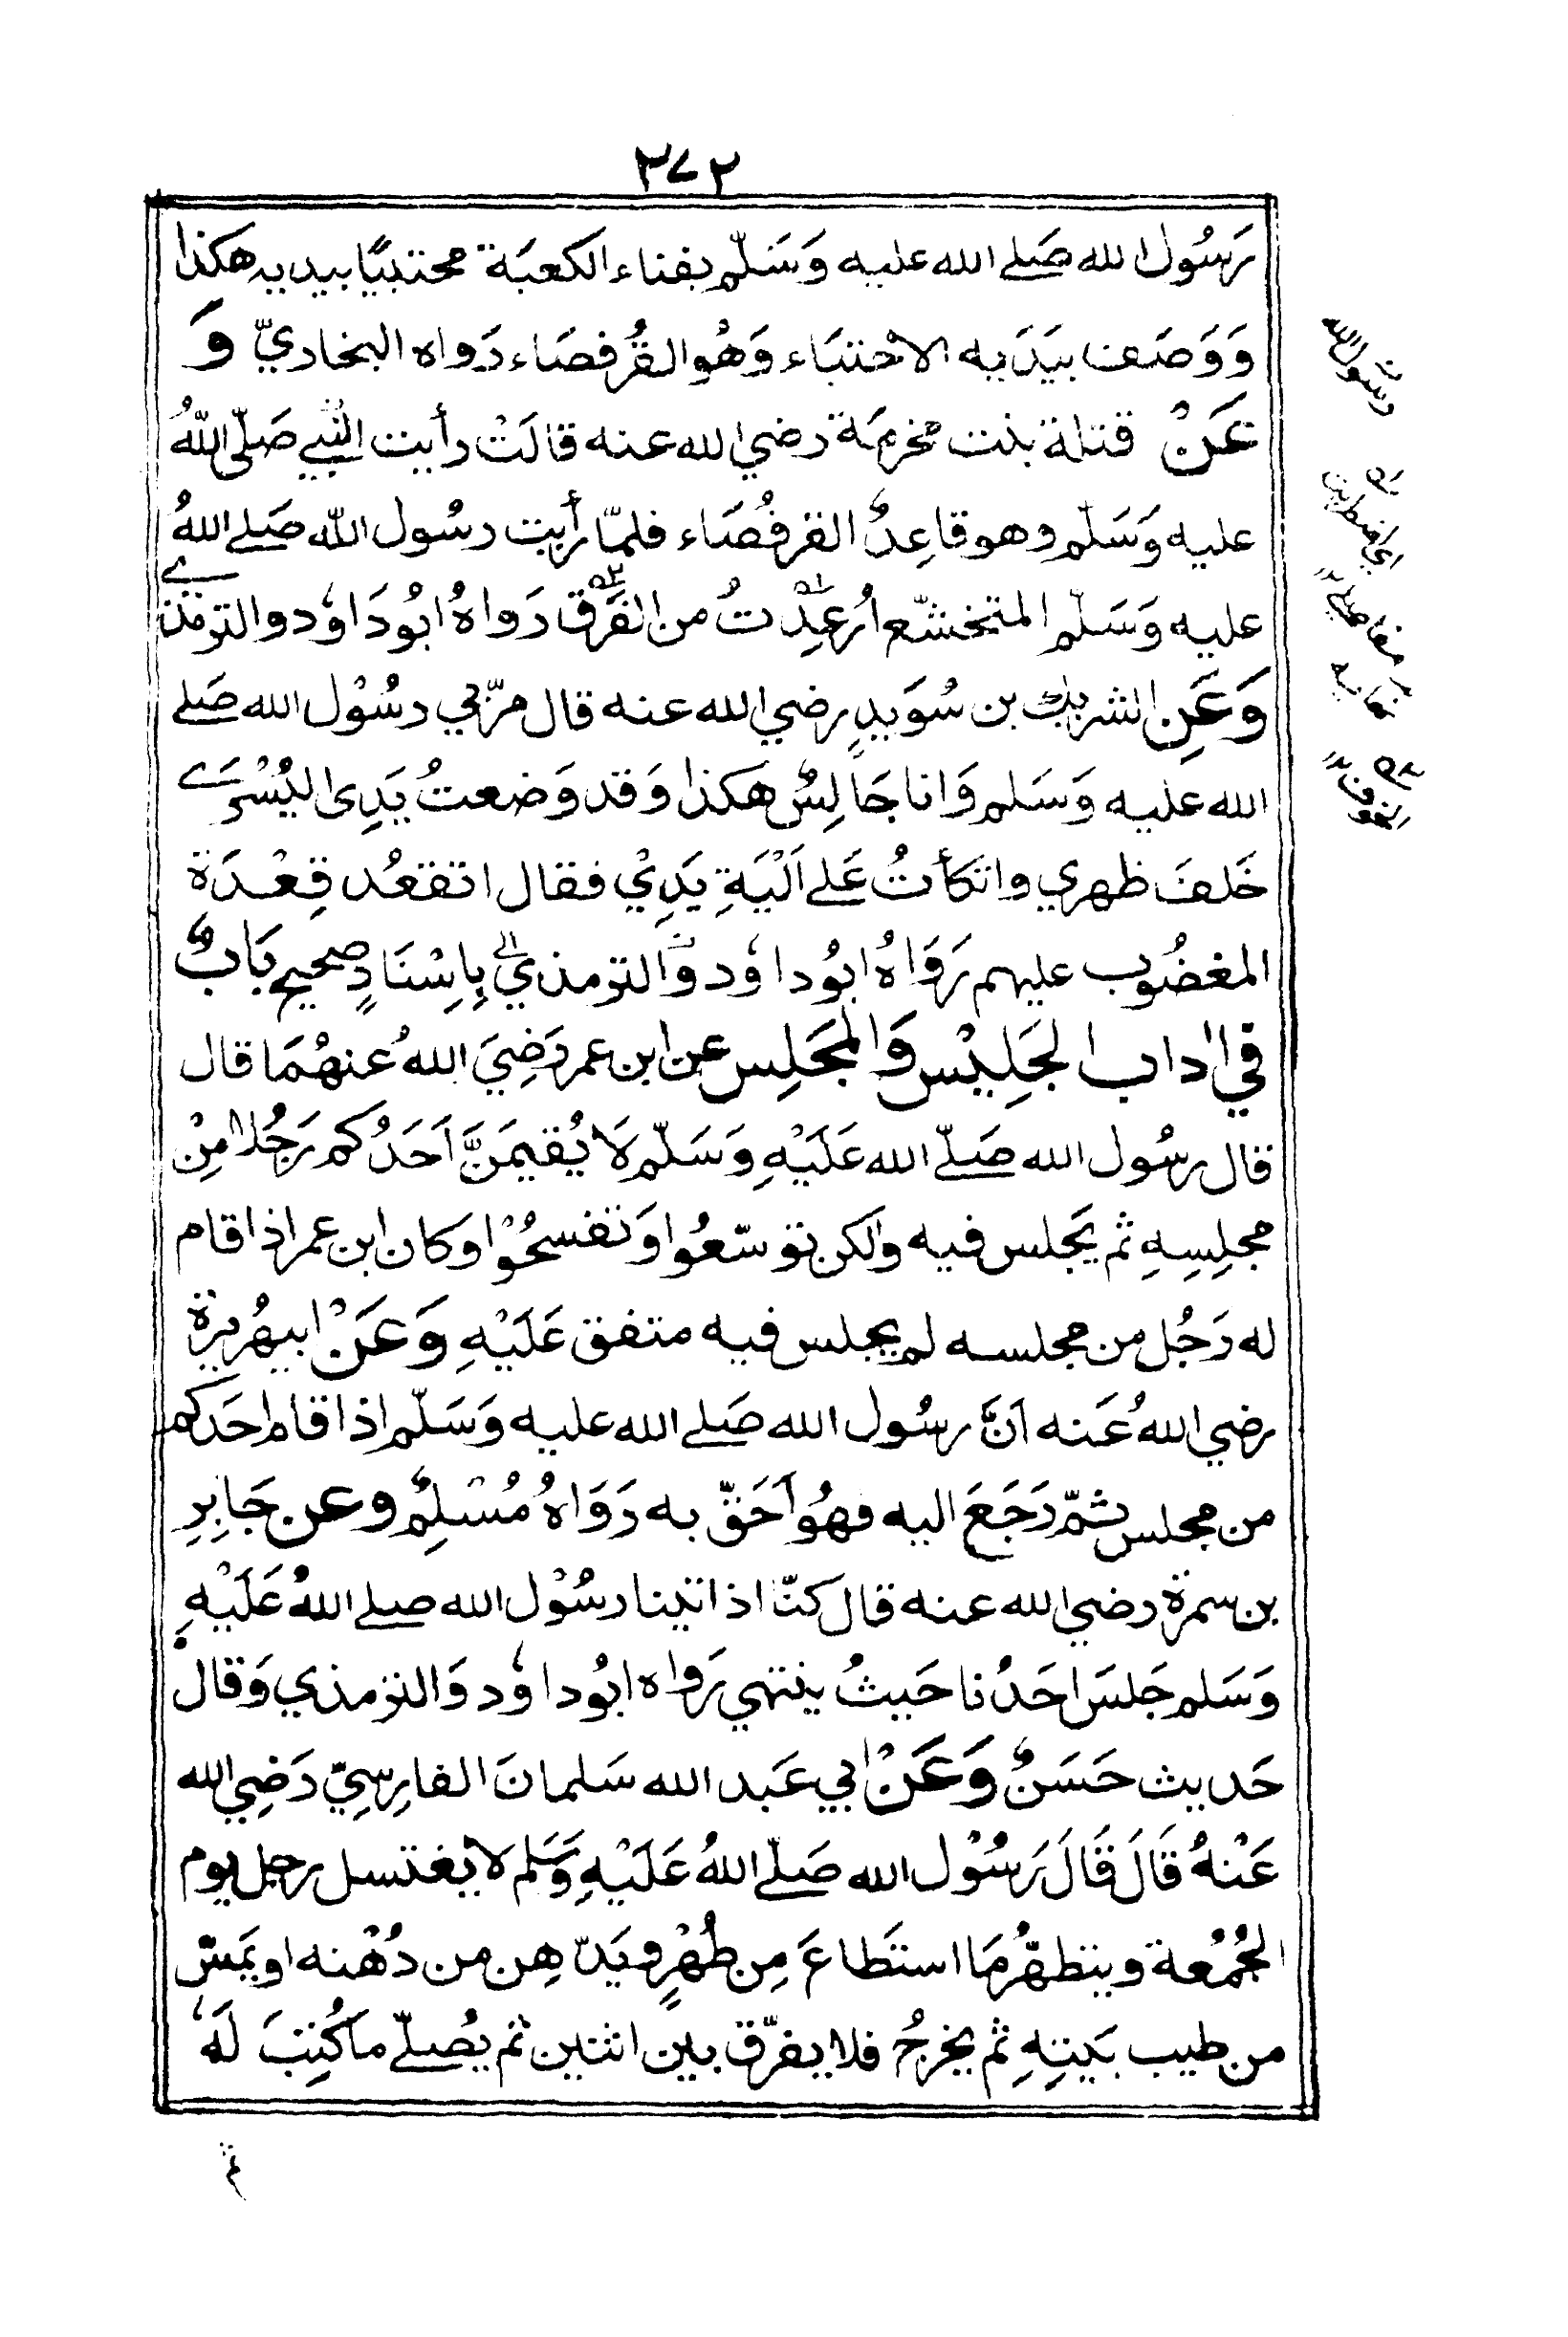 ٢٧٢
رَسُول الله صَلے الله عليه وَسَلّم بفناء الكعبَة محتبيًا بيديه هكذا
وَوَصَف بيَدَيه الاحْتبَاء وَهُو القُرفصَاء رَواه البخاريّ وَ
عَنْ قتلة بنت مخرمَة رضي الله عنه قالَتْ رأيت النّبي صَلّى اللهُ
عليه وَسَلّم وهو قاعِدٌ القرفُصَاء فلمّا رأيت رسُول الله صَلے اللهُ
عليه وَسَلّم المتخشّع اُرْعِدْتُ من الفَرَق رَواهُ ابُودَاوٗد والترمذي
وَعَنِ الشريك بن سُوَيدٍ رضي الله عنه قال مرّ بي رسُوْل الله صَلے
الله عليه وَسَلم وَانا جَالِسٌ هكذا وَقد وَضعتُ يَدِى اليُسْرَے
خَلفَ ظهري واتكأتُ عَلے اَلْيَةِ يَدِيْ فقال اتقعُد قِعْدَة
المغضُوب عليهم رَوَاهُ ابُوداوٗد والترمذي بِاِسْنَادٍ صحيح بَابٌ
في اداب الجَلِيْس وَالمجَلِس عن ابن عمر رَضِيَ اللهُ عنهْمَا قال
قال رسُول الله صَلّے الله عَلَيْهِ وَسَلّم لَا يُقيمَنَّ اَحَدُكم رَجُلا مِنْ
مجلِسِهِ ثم يَجلس فيه ولكن توسّعُوا وَتفسحُوْا وكان ابن عمر اذا قام
له رَجُل من مجلسه لم يجلس فيه متفق عَلَيْهِ وَعَنْ ابيهُريرة
رضي اللهُ عَنه اَنَّ رسُول الله صَلے الله عليه وَسَلّم اذا قام احَدكم
من مجلس ثمّ رَجَعَ اليه فهُو اَحَقّ به رَوَاهُ مُسْلِمٌ وعن جَابِرِ
بن سمرة رضي الله عنه قال كنّا اذا اتينا رسُوْل الله صلے اللهُ عَلَيْهِ
وَسَلم جَلسَ احَدُنا حَيثُ ينتهي رَواه ابُوداوٗد وَالترمذي وَقال
حَديث حَسَنٌ وَعَنْ ابي عَبد الله سَلمانَ الفارِسيّ رَضِي الله
عَنْهُ قَالَ قَالَ رَسُوْل الله صَلّے اللهُ عَلَيْهِ وَسَلم لا يغتسل رجل يوم
الجُمُعة ويتطهّر مَا استَطاعَ مِن طُهْرٍ ويَدّهِن من دُهْنه او يمَسّ
من طيب بَيتِهِ ثم يخرجُ فلا يفرّق بين اثنين ثم يصُلّے ما كُتِبَ لَهٗ
ثم